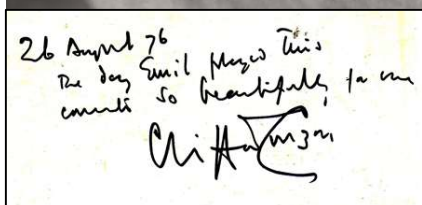 26 August 76
The day Emil played This
so beautifully for me
Clifford Curzon